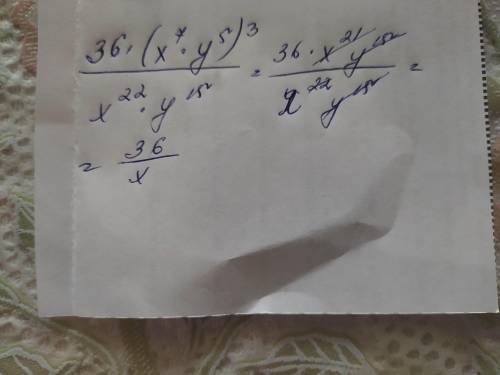 36·(x⁷·y⁵)³ / x²²·y¹⁵ = 36·x²¹y¹⁵ / x²²y¹⁵ =
= 36 / x